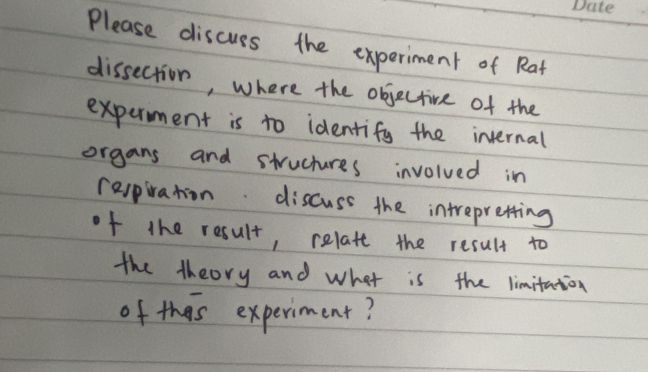 Date
Please discuss the experiment of Rat
dissection, where the objective of the
experiment is to identify the internal
organs and structures involved in
respiration. discuss the intrepretting
of the result, relate the result to
the theory and what is the limitation
of this experiment?